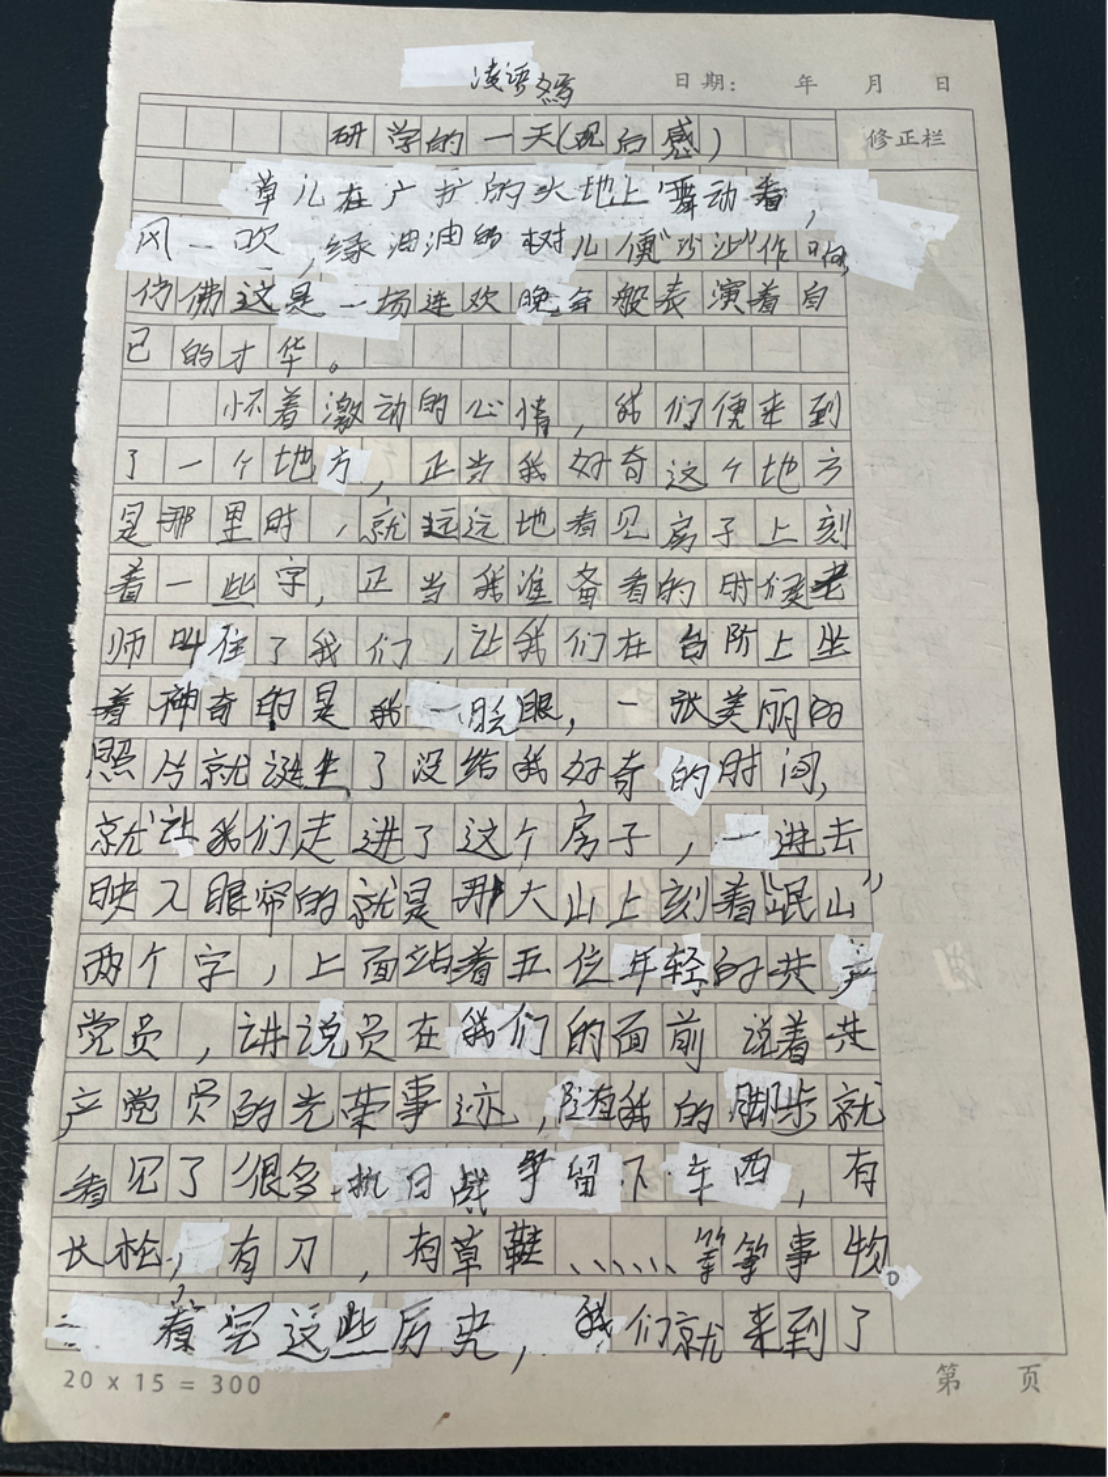 凌语嫣
日期： 年 月 日
研学的一天（观后感）
修正栏
草儿在广扩的大地上舞动着，
风一吹，绿油油的树儿便"沙沙"作响，
仿佛这是一场连欢晚会般表演着自
己的才华。
怀着激动的心情，我们便来到
了一个地方，正当我好奇这个地方
是那里时，就远远地看见房子上刻
着一些字，正当我准备看的时候老
师叫住了我们，让我们在台阶上坐
着神奇的是我一眨眼，一张美丽的
照片就诞生了没给我好奇的时间，
就让我们走进了这个房子，一进去
映入眼帘的就是那大山上刻着"岷山"
两个字，上面站着五位年轻的共产
党员，讲说员在我们的面前说着共
产党员的光荣事迹，随我的脚步就
看见了很多抗日战争留下东西，有
长枪，有刀，有草鞋、、、、、、等等事物。
看完这些历史，我们就来到了
20 x 15 = 300
第 页